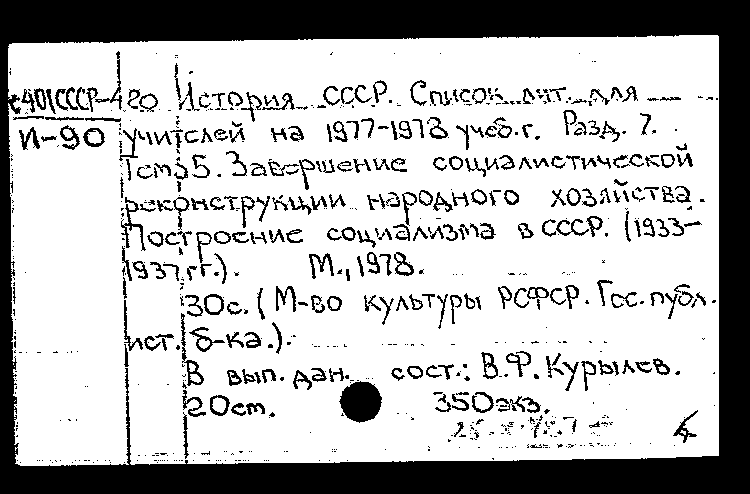 с401(СССР-420 История СССР. Список лит. для
И-90 учителей на 1977-1978 учеб.г. Разд. 7.
Тема 5. Завершение социалистической
реконструкции народного хозяйства.
Построение социализма в СССР. (1933-
1937 гг.). М., 1978.
30с. (М-во культуры РСФСР. Гос. публ.
ист. б-ка.).
В вып. дан. сост.: В.Ф. Курылев.
20ст. 350экз.